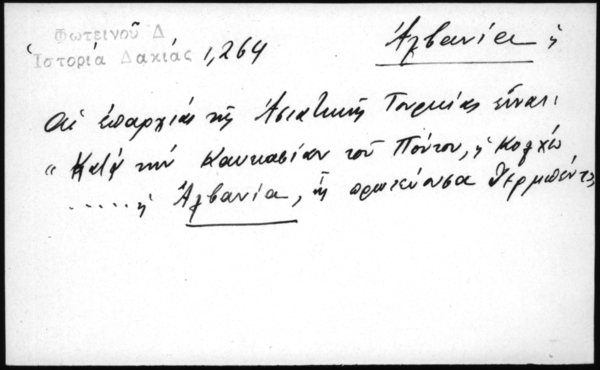 Φωτεινοῦ Δ
Ἱστορία Δακίας 1,264
Ἀλβανία ἡ
Αἱ ἐπαρχίαι τῆς Ἀσιατικῆς Τουρκίας εἶναι:
"Κατὰ τὴν Καυκασίαν τοῦ Πόντου, ἡ Κολχὶς
...... ἡ Ἀλβανία, ἧς πρωτεύουσα Δερμπέντ,